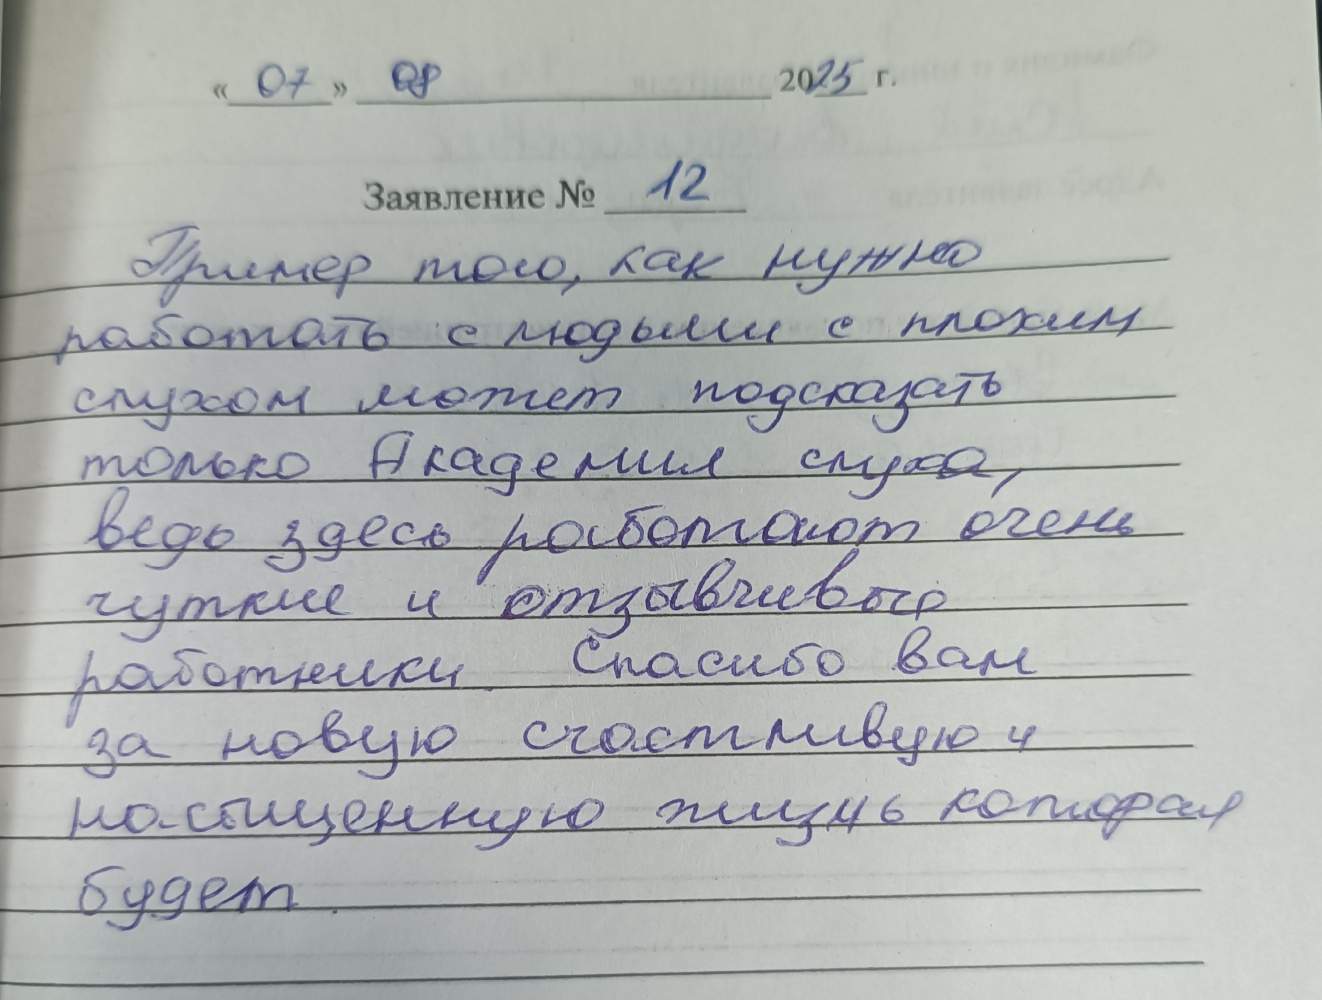 « 07 » 08 2025 г.
Заявление № 12
Пример того, как нужно
работать с людьми с плохим
слухом может подсказать
только Академия слуха,
ведь здесь работают очень
чуткие и отзывчивые
работники. Спасибо вам
за новую счастливую и
насыщенную жизнь которая
будет.